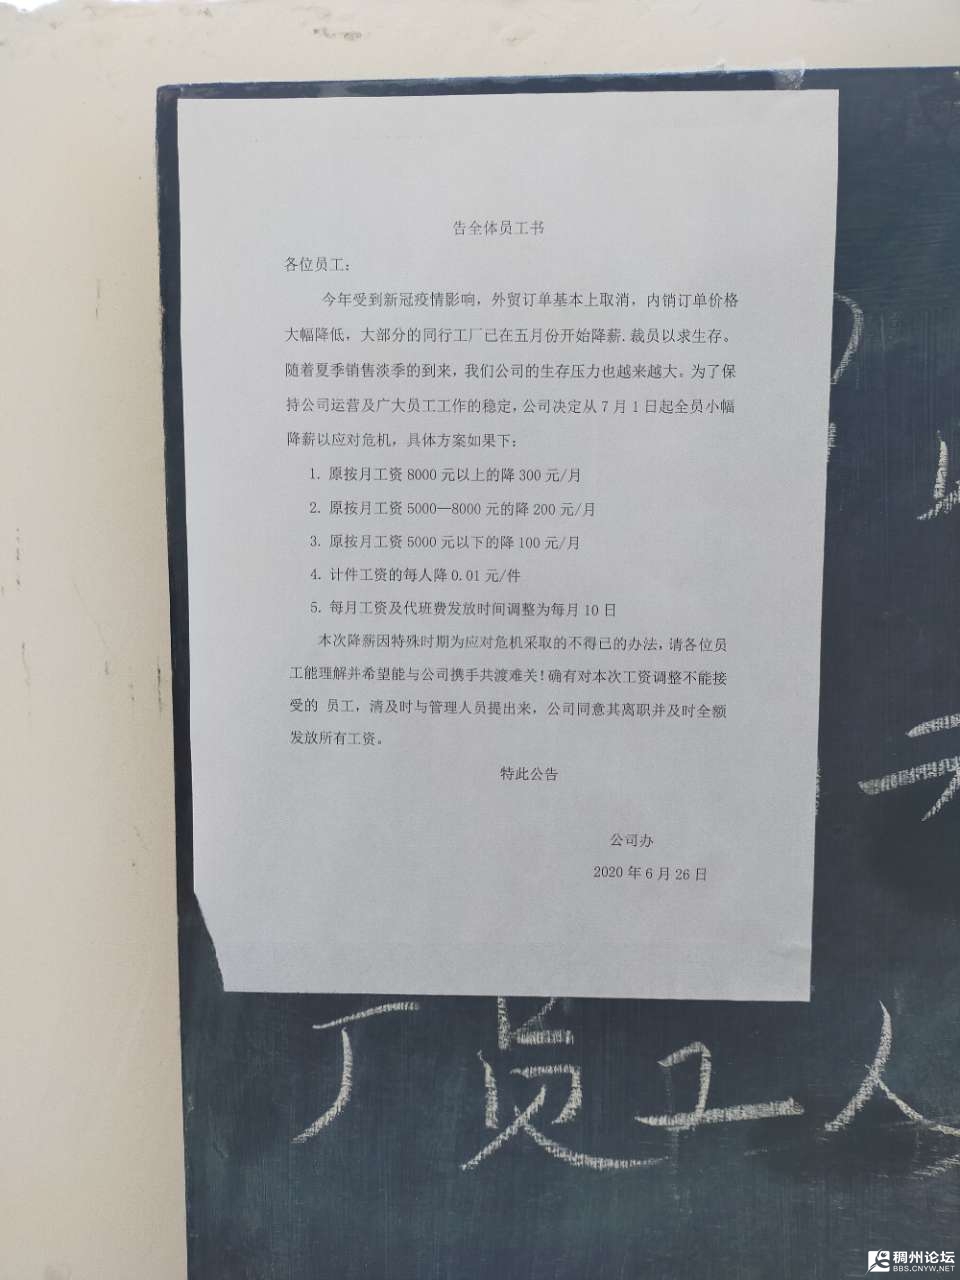 告全体员工书
各位员工：
今年受到新冠疫情影响，外贸订单基本上取消，内销订单价格
大幅降低，大部分的同行工厂已在五月份开始降薪.裁员以求生存。
随着夏季销售淡季的到来，我们公司的生存压力也越来越大。为了保
持公司运营及广大员工工作的稳定，公司决定从7月1日起全员小幅
降薪以应对危机，具体方案如果下：
1. 原按月工资8000元以上的降300元/月
2. 原按月工资5000—8000元的降200元/月
3. 原按月工资5000元以下的降100元/月
4. 计件工资的每人降0.01元/件
5. 每月工资及代班费发放时间调整为每月10日
本次降薪因特殊时期为应对危机采取的不得已的办法，请各位员
工能理解并希望能与公司携手共渡难关！确有对本次工资调整不能接
受的 员工，清及时与管理人员提出来，公司同意其离职并及时全额
发放所有工资。
特此公告
公司办
2020年6月26日
员工人
稠州论坛
BBS.CNYW.NET